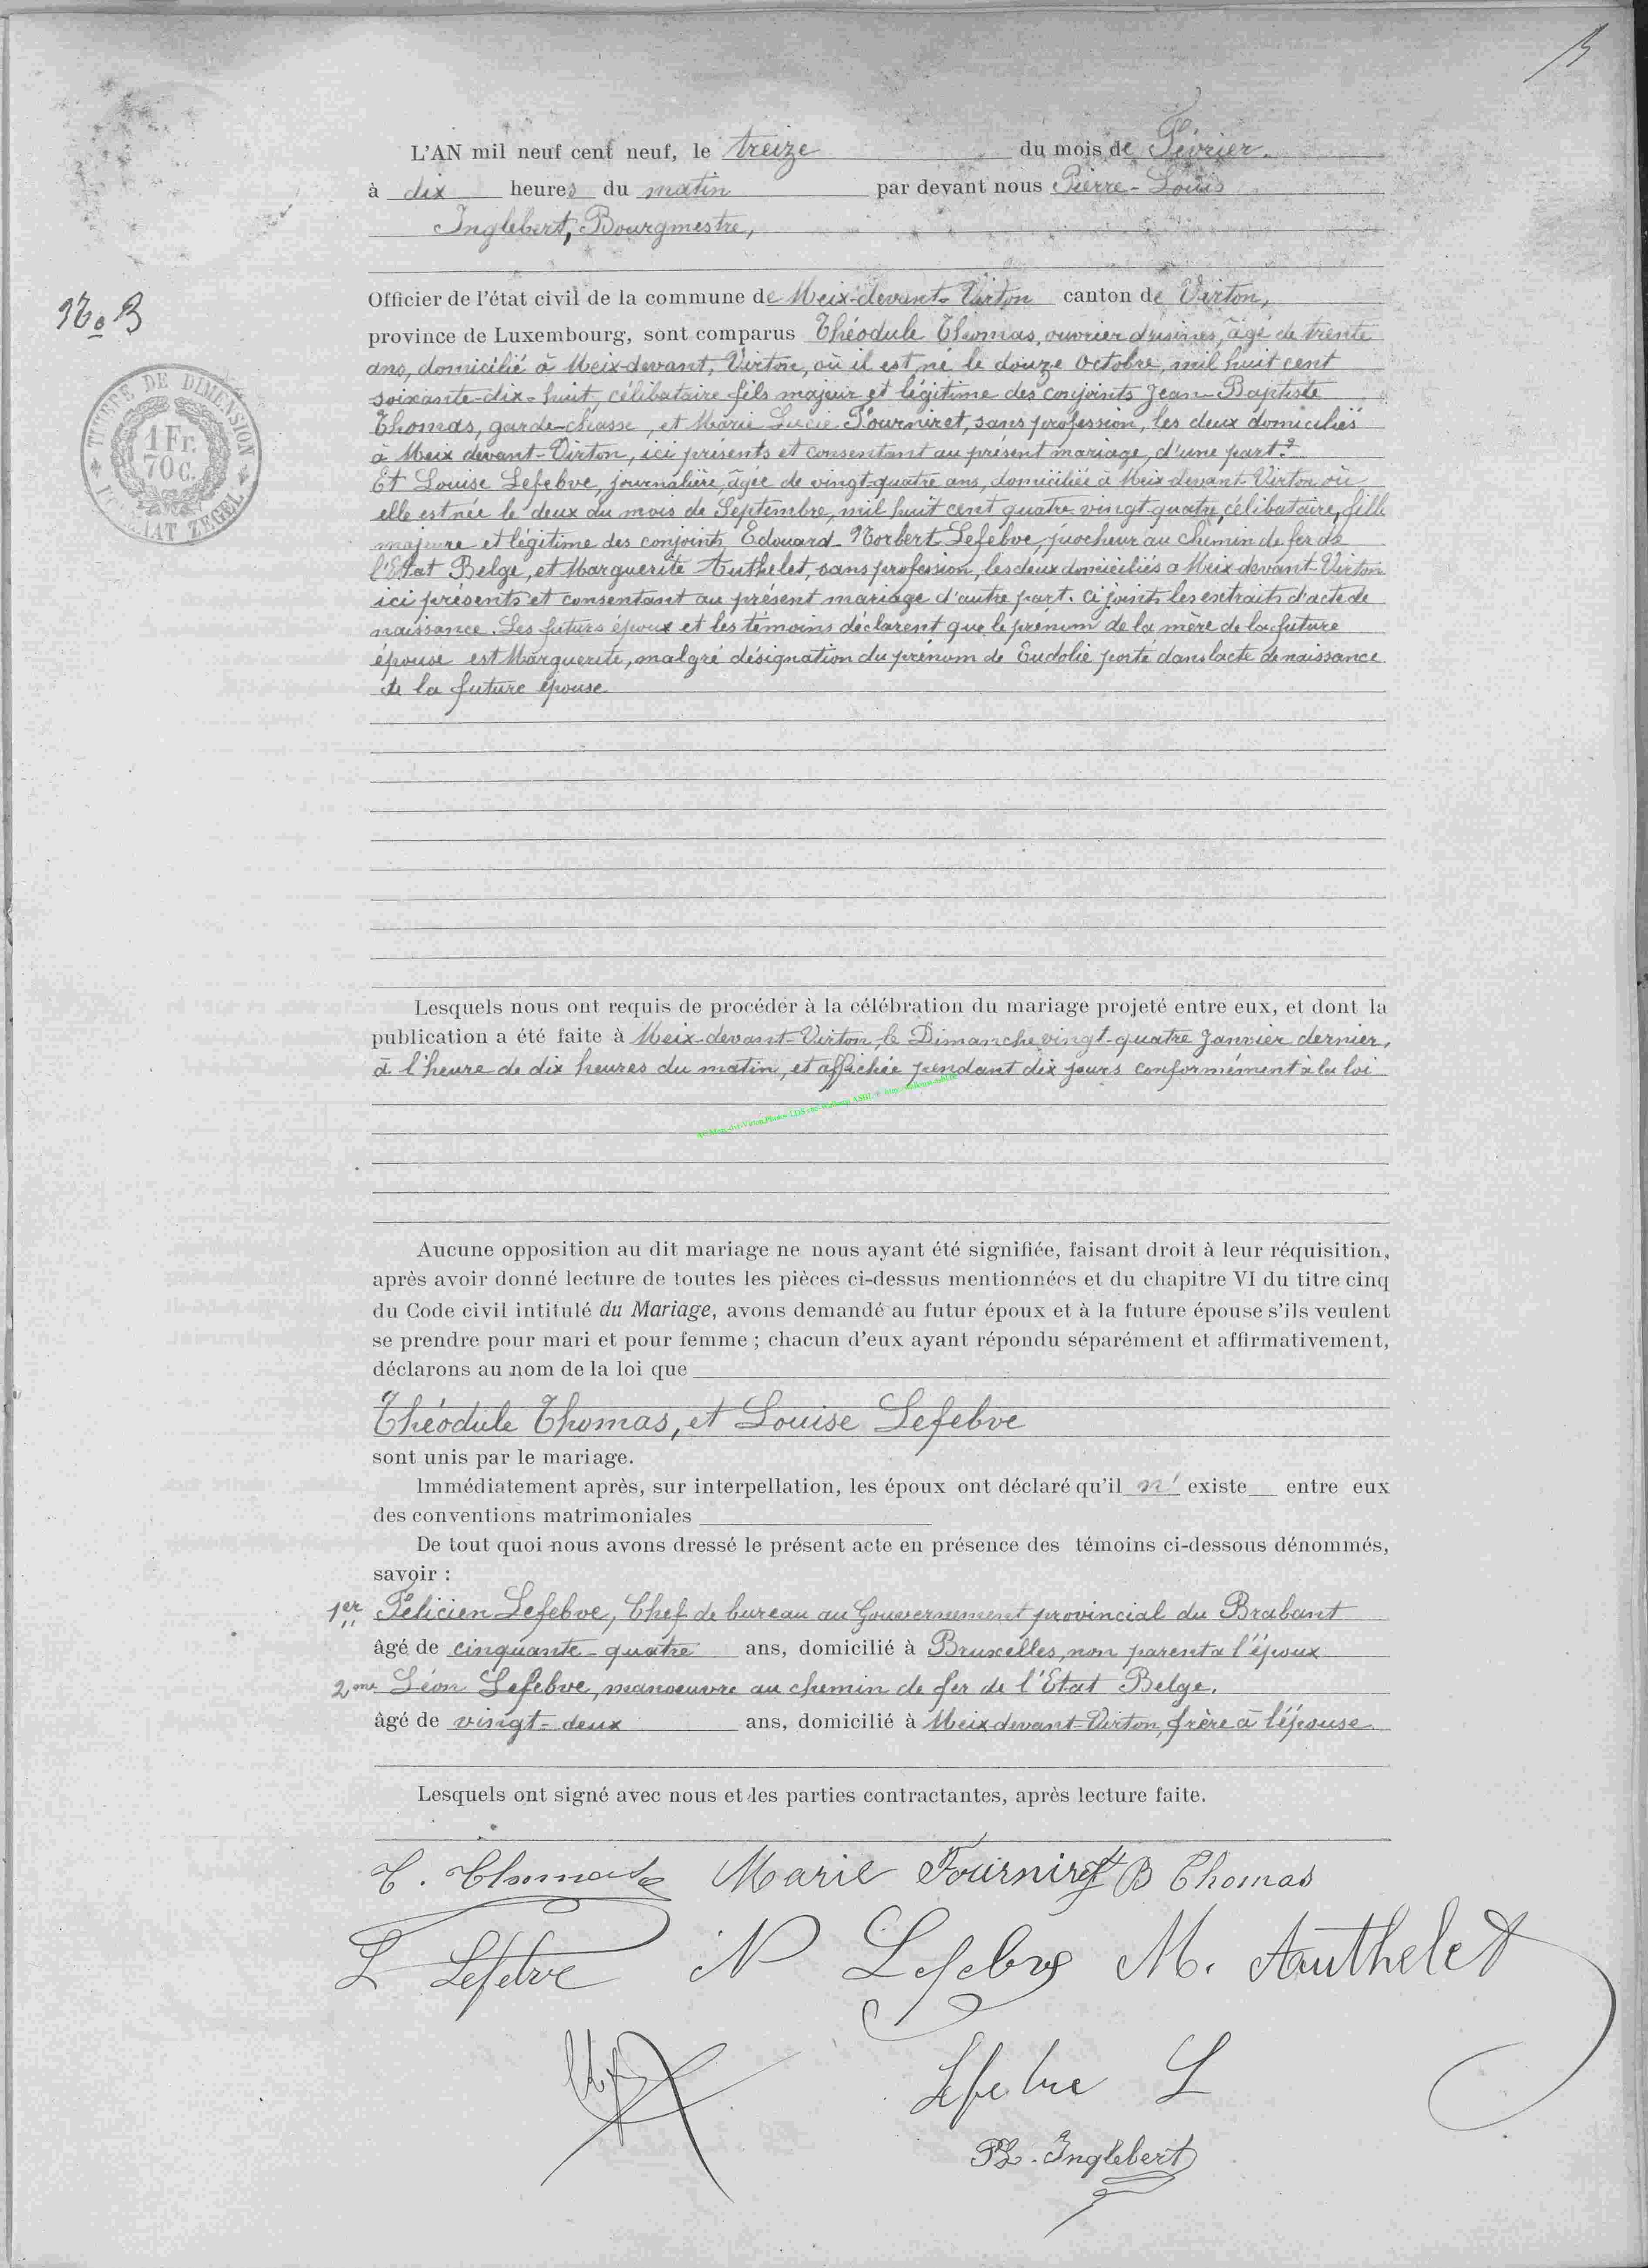 L'AN mil neuf cent neuf, le treize du mois de Février.
à dix heures du matin par devant nous Pierre-Louis
Inglebert, Bourgmestre,
No 3
TIMBRE DE DIMENSION
1 Fr.
70 C.
ZEGEL
Officier de l'état civil de la commune de Meix-devant-Virton canton de Virton,
province de Luxembourg, sont comparus Théodule Thomas, ouvrier d'usines, âgé de trente
ans, domicilié à Meix-devant, Virton, où il est né le douze octobre, mil huit cent
soixante-dix-huit, célibataire fils majeur et légitime des conjoints Jean-Baptiste
Thomas, garde-chasse, et Marie Lucie Fourniret, sans profession, les deux domiciliés
à Meix devant-Virton, ici présents et consentant au présent mariage, d'une part.
Et Louise Lefebve, journalière, âgée de vingt-quatre ans, domiciliée à Meix-devant-Virton où
elle est née le deux du mois de Septembre, mil huit cent quatre-vingt-quatre, célibataire, fille
majeure et légitime des conjoints Edouard-Norbert Lefebve, piocheur au chemin de fer de
l'Etat Belge, et Marguerite Authelet, sans profession, les deux domiciliés à Meix-devant-Virton
ici présents et consentant au présent mariage d'autre part. Ci joints les extraits d'acte de
naissance. Les futurs époux et les témoins déclarent que le prénom de la mère de la future
épouse est Marguerite, malgré désignation du prénom de Eudolie porté dans l'acte de naissance
de la future épouse
Lesquels nous ont requis de procéder à la célébration du mariage projeté entre eux, et dont la
publication a été faite à Meix-devant-Virton, le Dimanche vingt-quatre Janvier dernier,
à l'heure de dix heures du matin, et affichée pendant dix jours conformément à la loi
Aucune opposition au dit mariage ne nous ayant été signifiée, faisant droit à leur réquisition,
après avoir donné lecture de toutes les pièces ci-dessus mentionnées et du chapitre VI du titre cinq
du Code civil intitulé du Mariage, avons demandé au futur époux et à la future épouse s'ils veulent
se prendre pour mari et pour femme ; chacun d'eux ayant répondu séparément et affirmativement,
déclarons au nom de la loi que
Théodule Thomas, et Louise Lefebve
sont unis par le mariage.
Immédiatement après, sur interpellation, les époux ont déclaré qu'il n' existe entre eux
des conventions matrimoniales
De tout quoi nous avons dressé le présent acte en présence des témoins ci-dessous dénommés,
savoir :
1er Félicien Lefebve, Chef de bureau au Gouvernement provincial du Brabant
âgé de cinquante-quatre ans, domicilié à Bruxelles, non parent à l'époux
2me Léon Lefebve, manoeuvre au chemin de fer de l'Etat Belge.
âgé de vingt-deux ans, domicilié à Meix-devant-Virton, frère à l'épouse
Lesquels ont signé avec nous et les parties contractantes, après lecture faite.
T. Thomas Marie Fourniret JB Thomas
L Lefebve N Lefebve M. Authelet
Lefebve L
PL. Inglebert